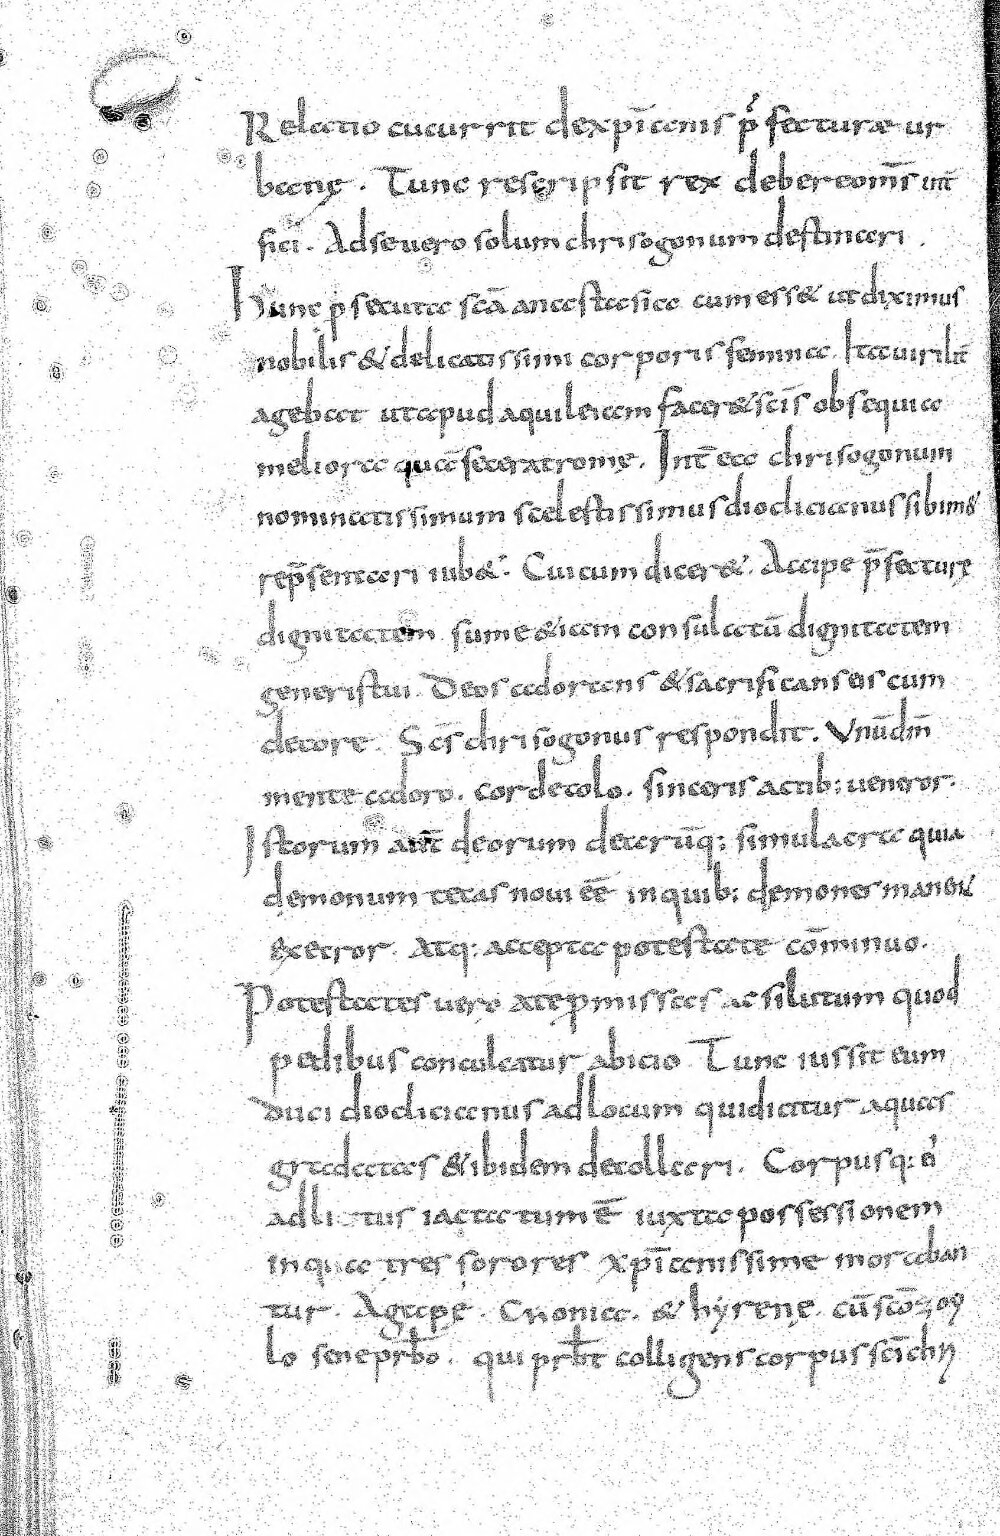 Relatio cucurrit dexp̄ianis p̄fecturæ ur
banę . Tunc rescripsit rex debereom̄s int̄
fici . Adseuero solum chrisogonum destinari .
Hunc psecuta sc̄a anastasia cum ess& utdiximus
nobilis &delicatissimi corporis femina. Ita uirilit̄
agebat utapud aquileiam facer& sc̄is obsequia
meliora quā fecerat romę. Int̄ ea chrisogonum
nominatissimum scelestissimus dioclicianus sibim&
rep̄sentari iub&. Cui cum dicer&. Accipe p̄fecturę
dignitatem sume &iam consulatū dignitatem
generis tui. Deos adorans &sacrificans eis cum
decore. Sc̄s chrisogonus respondit. Vnūdm̄
mente adoro. corde colo. sinceris actib; ueneror.
Istorum aūt deorum deterūq; simulacra quia
demonum tecas noui eē in quib; demones man&
execror. Atq; accepta potestate cōminuo.
Potestates uero ate pmissas ac silutum quod
pedibus conculcatur abicio Tunc iussit eum
duci dioclicianus adlocum qui dicitur aquas
gradatas &ibidem decollari. Corpusq; ei
ad litus iactatum ē iuxta possessionem
in qua tres sorores xp̄ianissime moraban
tur. Agape. Chonia. & hyrene. cū scō zoy
lo sene prb̄o. qui prb̄t colligens corpus sc̄i chri